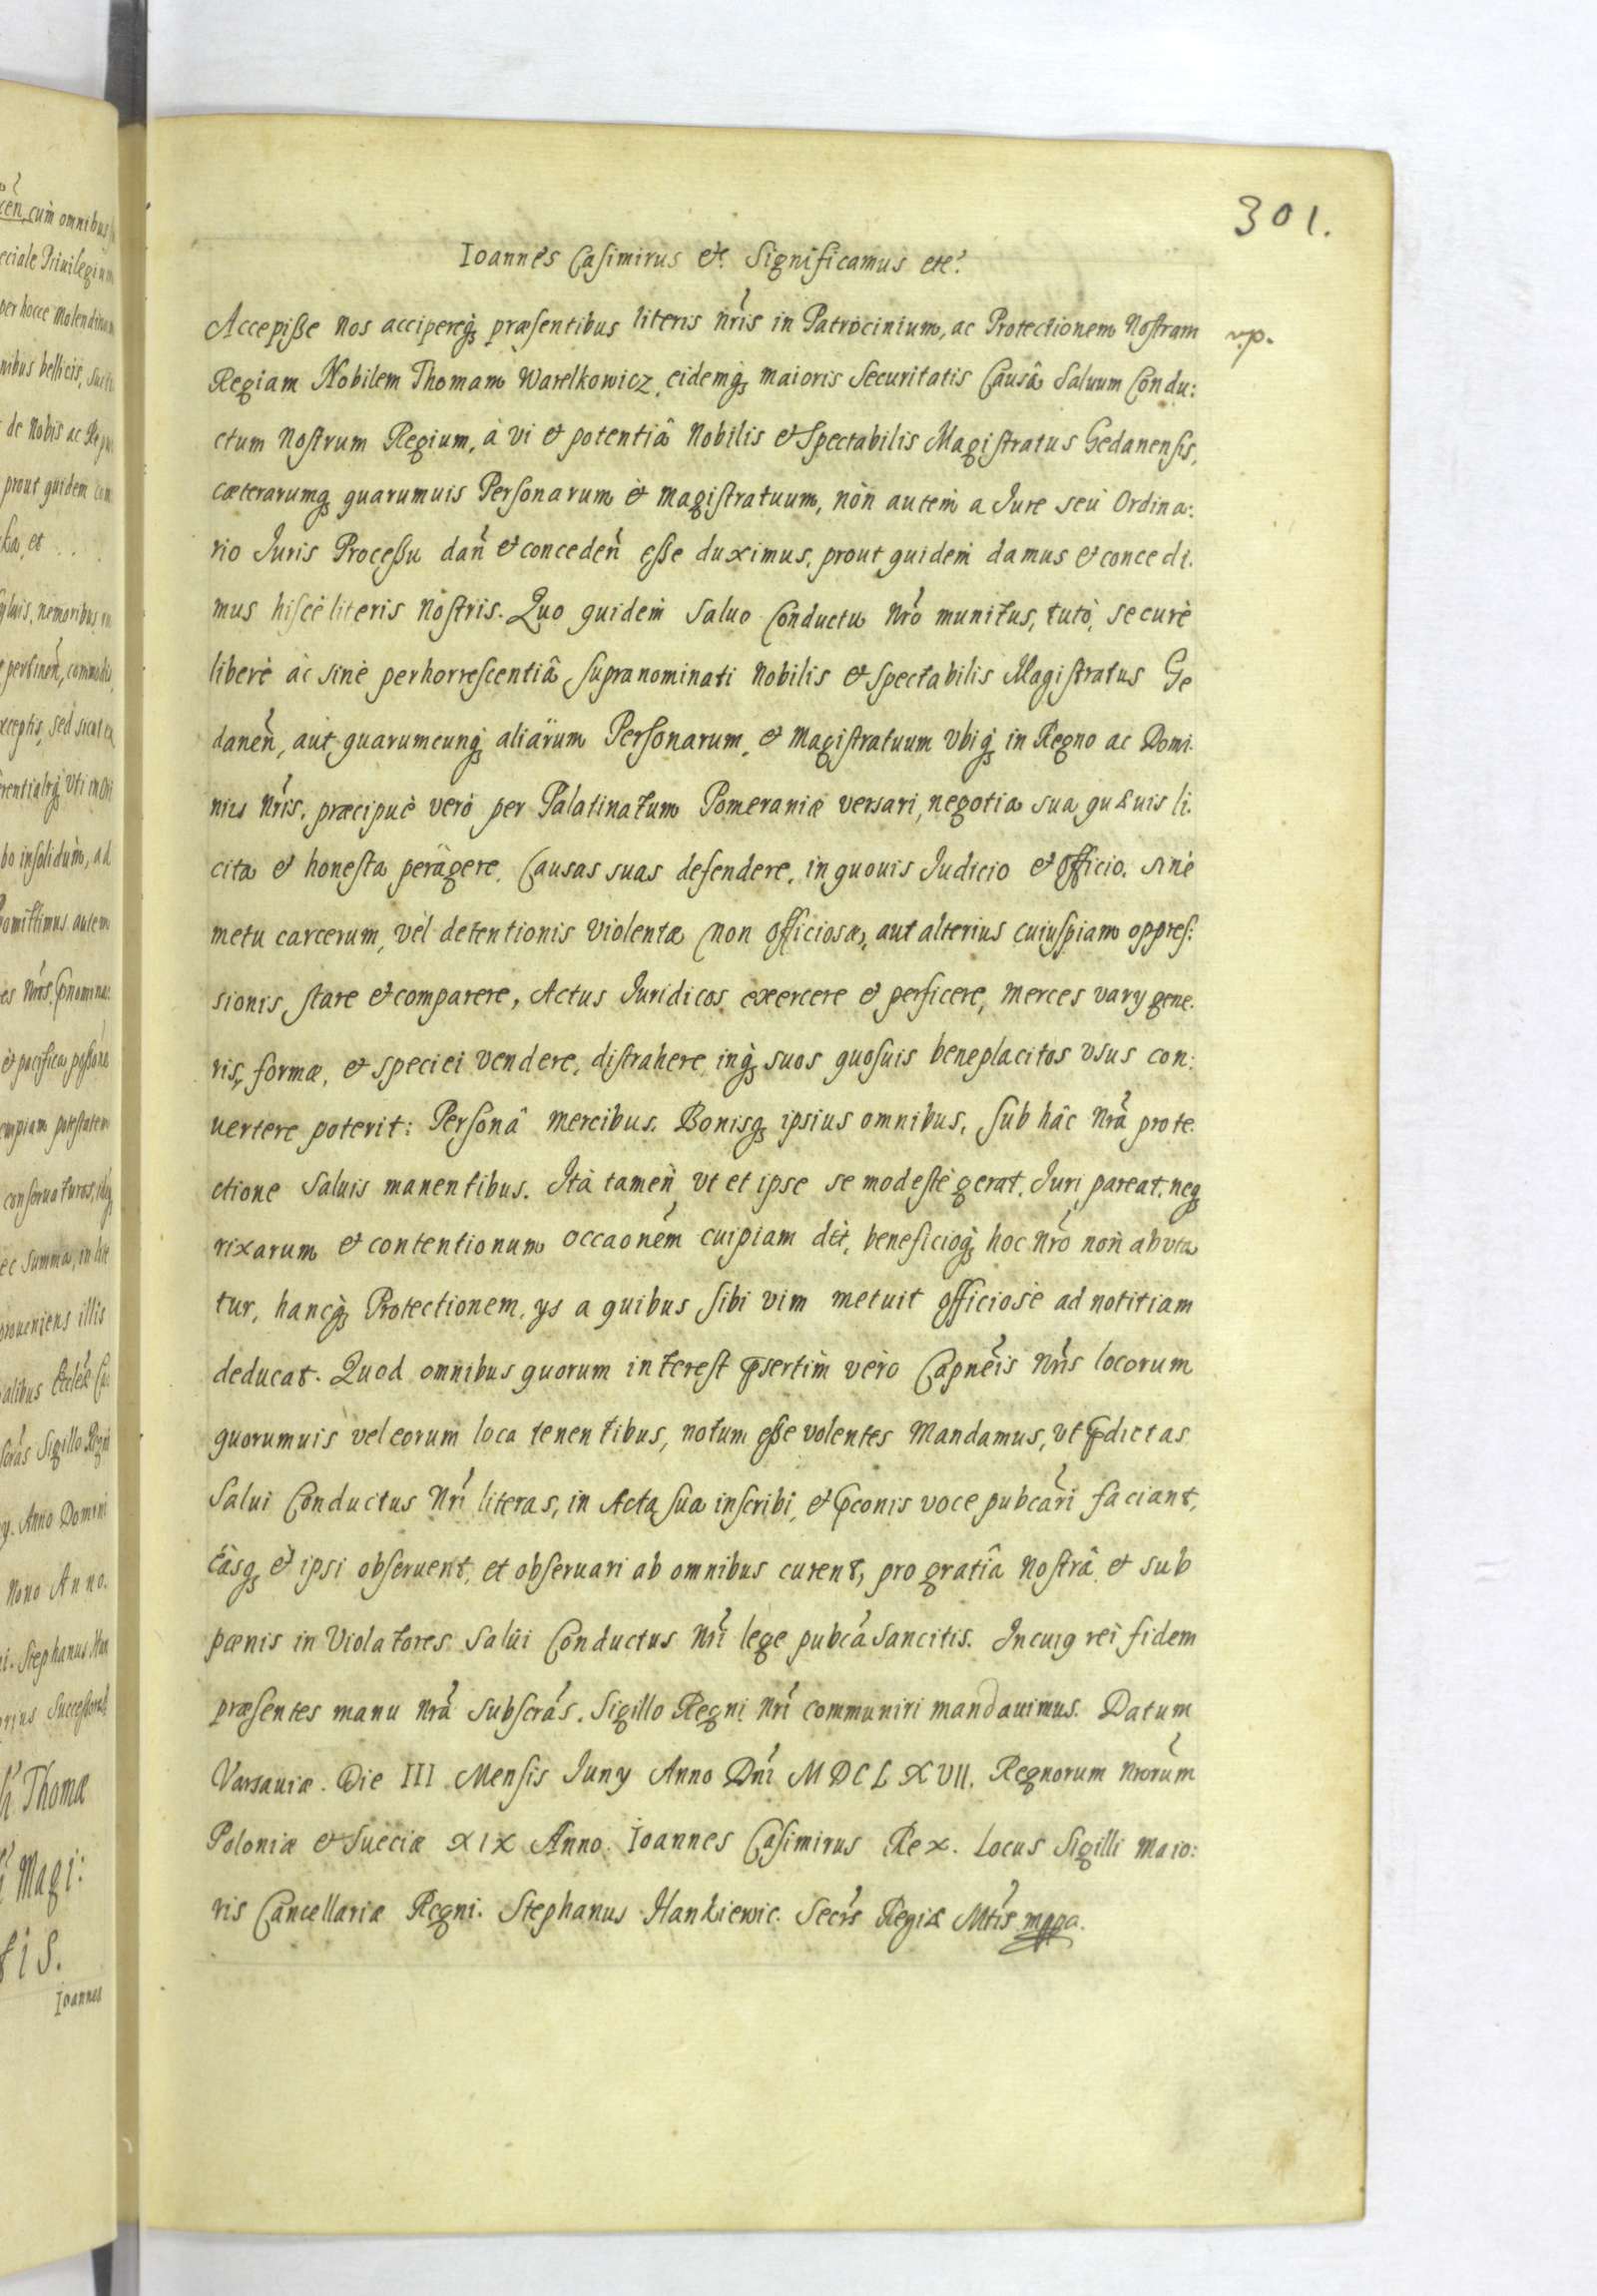 301.
Ioannes Casimirus etc. Significamus etc.
Accepiße nos acciperèq́ꝫ præsentibus literis nr̃is in Patrocinium, ac Protectionem Nostram
v.p.
Regiam Nobilem Thomam Warelkowicz, eidemq́ꝫ maioris Securitatis Causâ Saluum Condu:
ctum Nostrum Regium, à vi et potentiâ Nobilis et Spectabilis Magistratus Gedanensis,
cæterarumq́ꝫ quarumuis Personarum et Magistratuum, nòn autem̀ a Iure seù Ordina:
rio Iuris Proceßu dañ et conced̃en eße duximus, prout quidem̀ damus et concedi.
mus hiscè literis Nostris. Quo quidem̀ Saluo Conductu nr̃o munitus, tutò, securè
liberè àc sinè perhorrescentiâ, supranominati Nobilis et Spectabilis Magistratus Ge
daneñ, aùt quarumcunq́ꝫ aliarum Personarum, et Magistratuum vbiq́ꝫ in Regno ac Domi.
nijs nr̃is, præcipuè verò per Palatinatum Pomeraniæ versari, negotia sua quæuis li.
cita et honesta peragere, Causas suas defendere, in quouis Iudicio et Officio, sinè
metu carcerum, vèl detentionis violentæ (non officiosæ), aut alterius cuiuspiam oppres:
sionis, stare et comparere, Actus Iuridicos exercere et perficere, merces varij gene.
ris, formæ, et speciei vendere, distrahere, inq́ꝫ suos quosuis beneplacitos vsus con:
uertere poterit: Personâ mercibus, Bonisq́ꝫ ipsius omnibus, sub hâc nr̃a prote.
ctione Saluis manentibus. Ità tamen̄ vt et ipse se modestè gerat, Iuri pareat, neqꝫ
rixarum et contentionum occaõnem cuipiam dèt, beneficioq́ꝫ hoc nr̃o non̄ abuta
tur, hancq́ꝫ Protectionem, ijs a quibus sibi vim metuit officiosè ad notitiam
deducat. Quod omnibus quorum interest p̃sertim̀ verò Capnẽis nr̃is locorum
quorumuis vel eorum loca tenentibus, notum eße volentes Mandamus, vt p̃dictas
Salui Conductus nr̃i literas, in Acta sua inscribi, et p̃conis voce pubcãri faciant,
eàsqꝫ et ipsi obseruent, et obseruari ab omnibus curent, pro gratiâ Nostrâ et sub
pœnis in Violatores Salui Conductus nr̃i lege pubcã sancitis. In cuiq rèi fidem
præsentes manu nr̃a subscr̃as, Sigillo Regni nr̃i communiri mandauimus. Datum
Varsauiæ. Die III Mensis Iunij Anno Dñi MDCLXVII. Regnorum nr̃orum
Poloniæ et Sueciæ XIX Anno. Ioannes Casimirus Rex. Locus Sigilli Maio:
ris Cancellariæ Regni. Stephanus Hankiewic. Secr̃s Regiæ Mt̃is mppa.